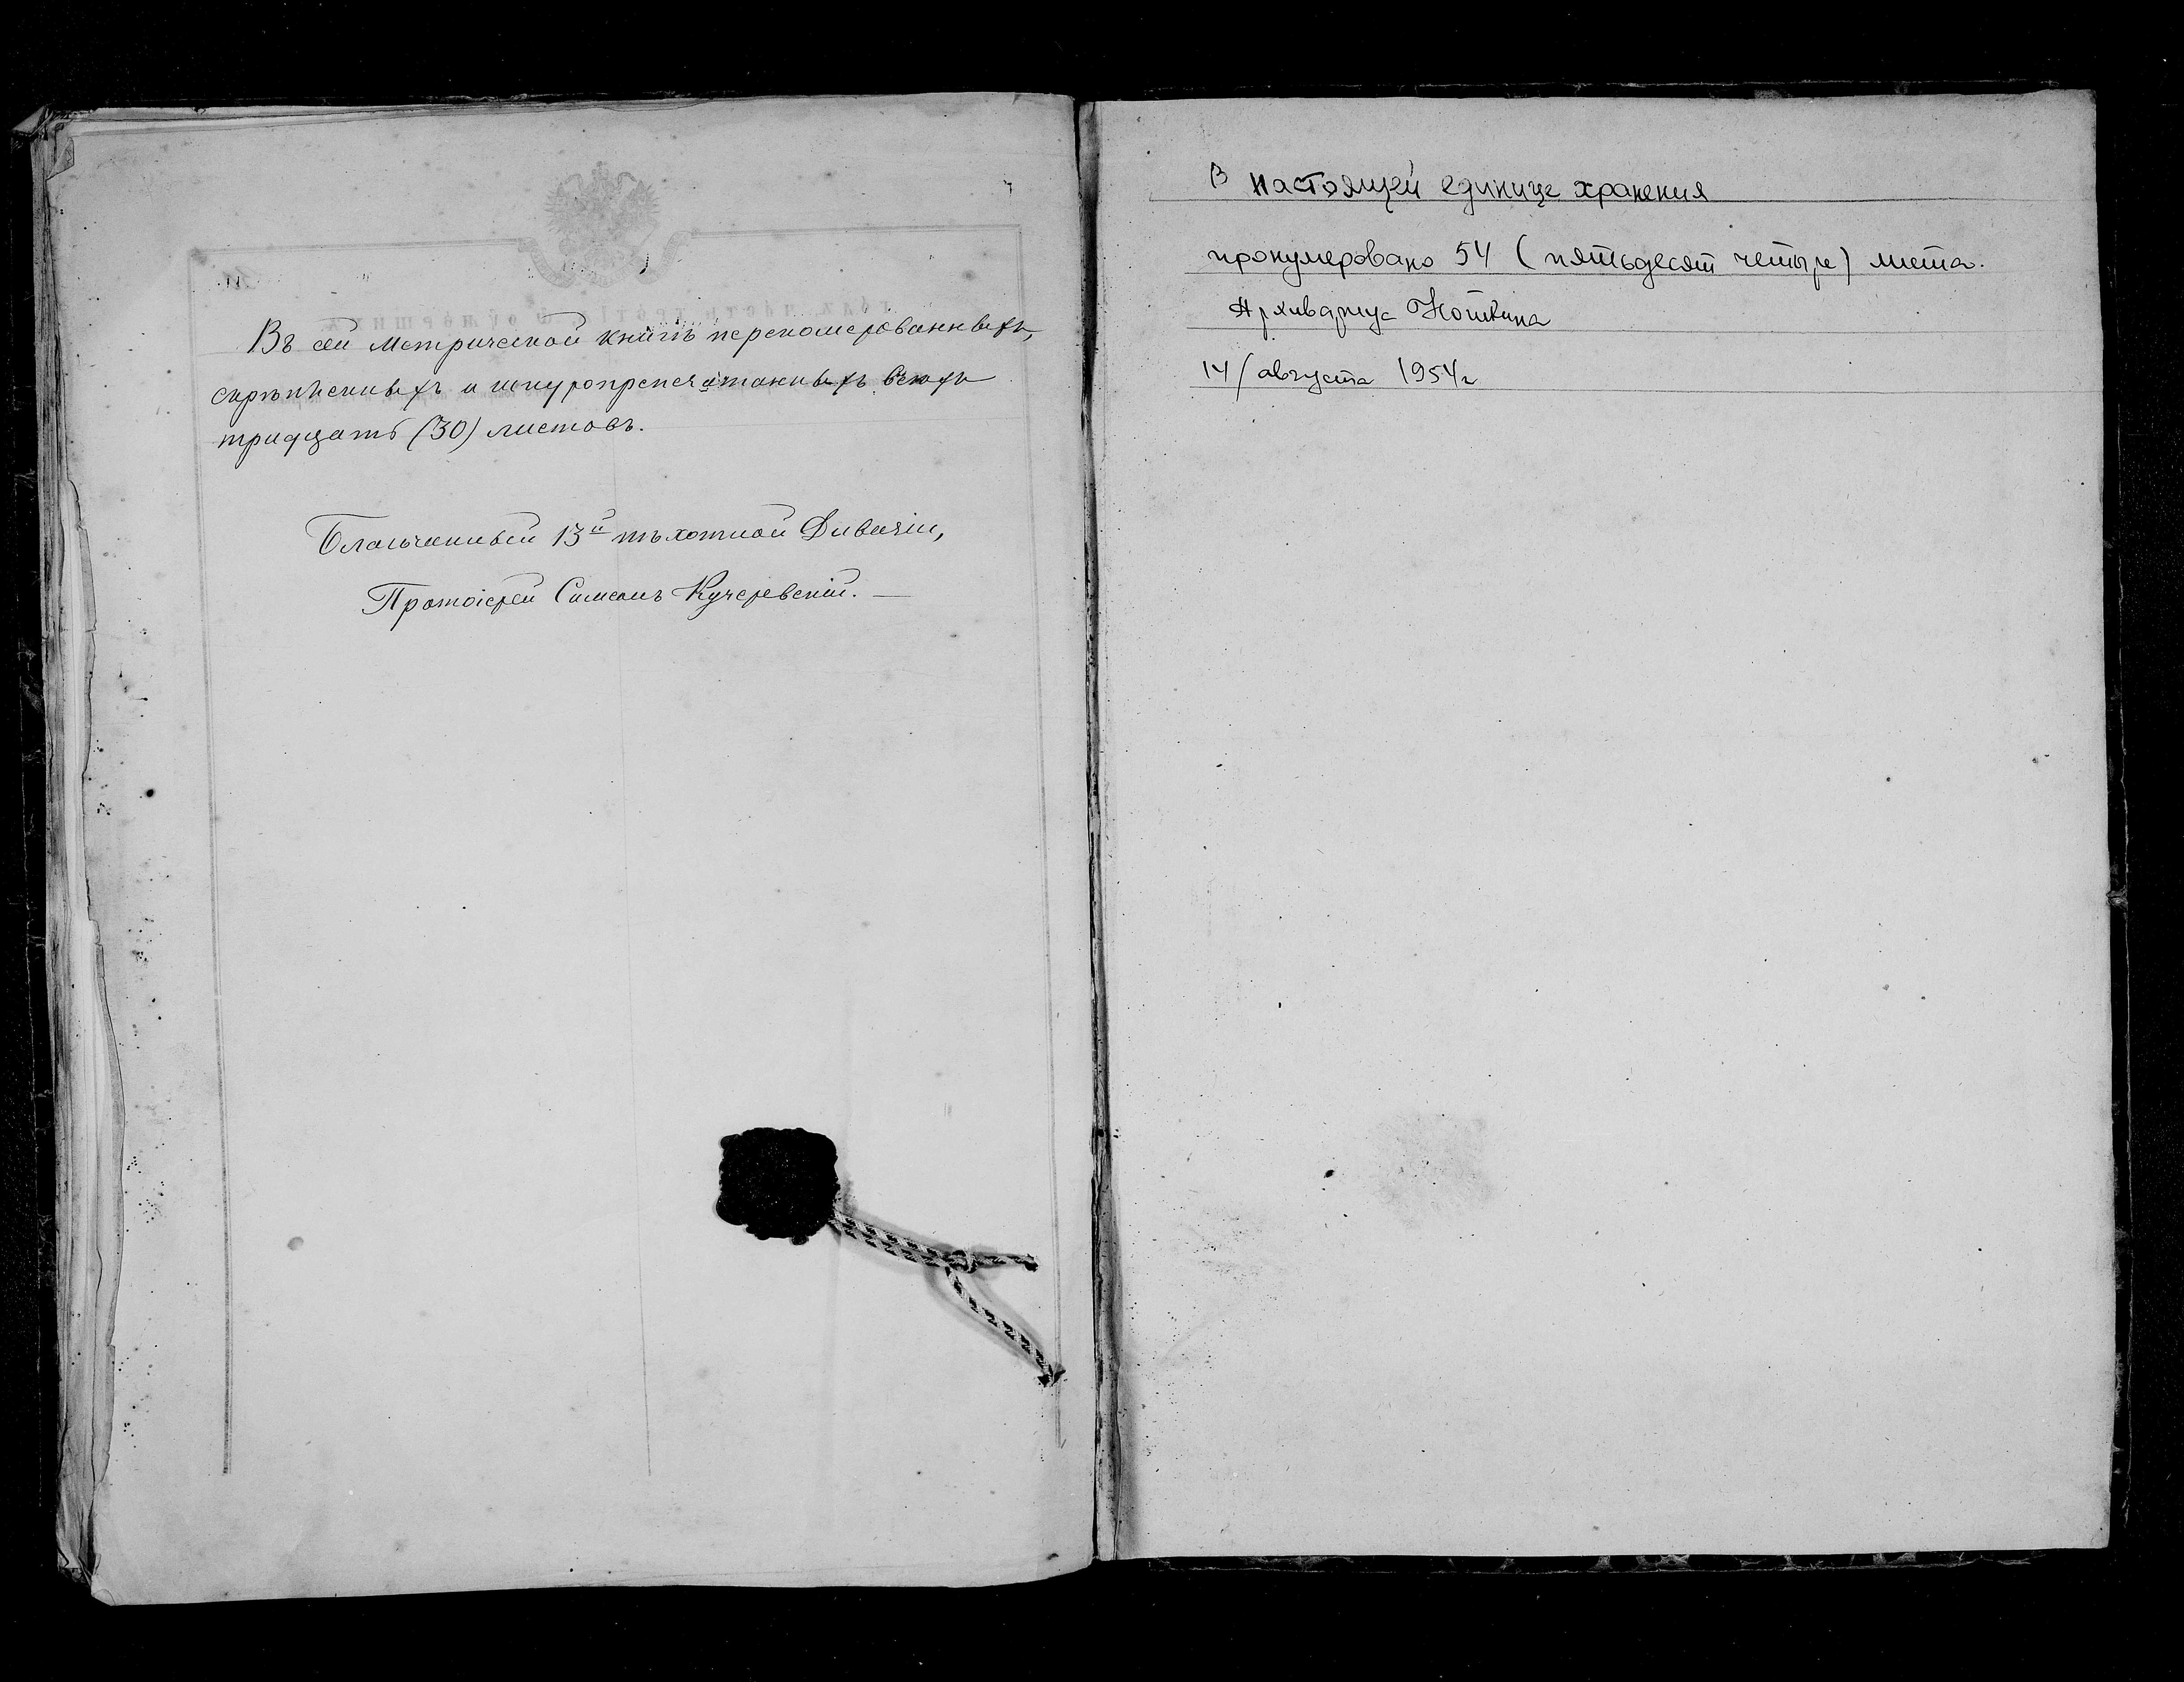 Въ сей Метрической книгѣ перенумерованныхъ,
скрѣпленныхъ и шнуропрепечатанныхъ всѣхъ
тридцать (30) листовъ.
Благочинный 13й пѣхотной Дивизіи,
Протоіерей Симеонъ Кучеревскій.
В настоящей единице хранения
пронумеровано 54 (пятьдесят четыре) листа.
Архивариус
14/августа 1954г